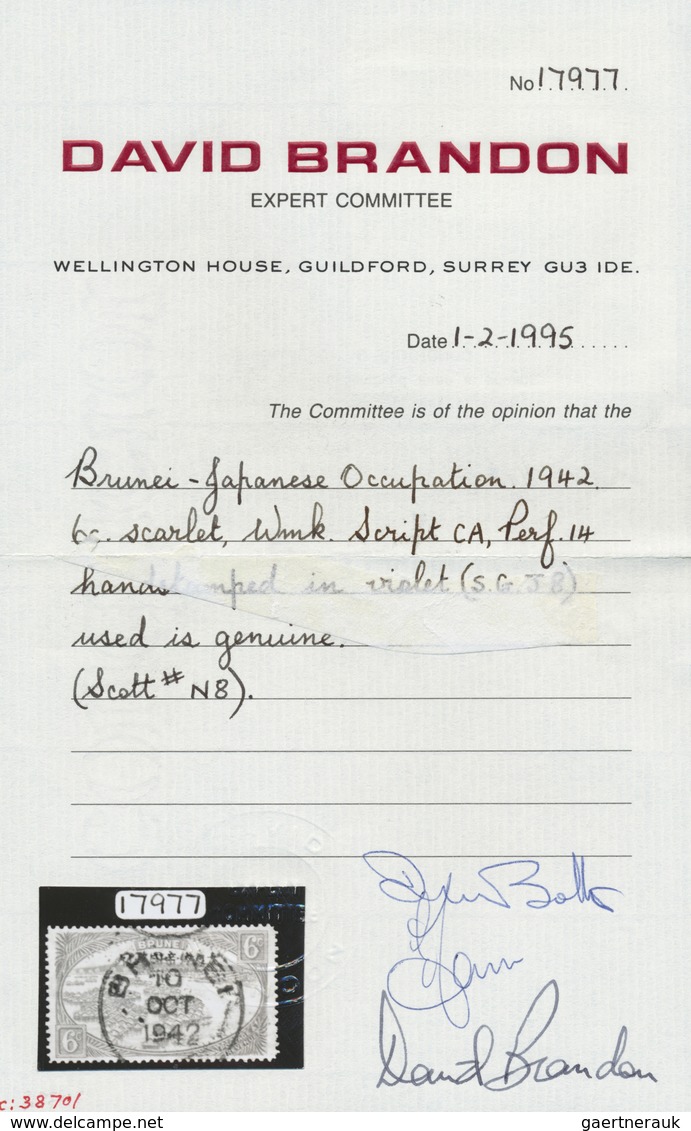 No 17977
DAVID BRANDON
EXPERT COMMITTEE
WELLINGTON HOUSE, GUILDFORD, SURREY GU3 1DE.
Date 1-2-1995
The Committee is of the opinion that the
Brunei - Japanese Occupation. 1942.
6c. scarlet, Wmk. Script CA, Perf. 14
handstamped in violet (S.G. J8)
used is genuine.
(Scott # N8).
17977
BRUNEI
6c
BRUNEI
10
OCT
1942
6c
David Brandon
c:38701
gaertnerauk